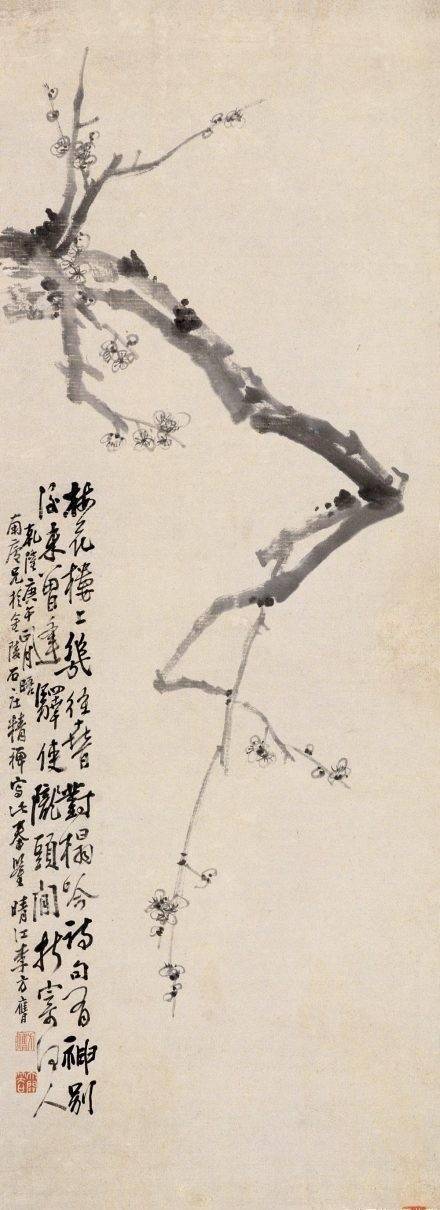 梅花樓上幾往春對榻吟詩句有神別
後來曾逢驛使隴頭閒折寄何人
乾隆庚午正月晤
南廬兄於金陵石庄精禪寫此奉鑒晴江李方膺